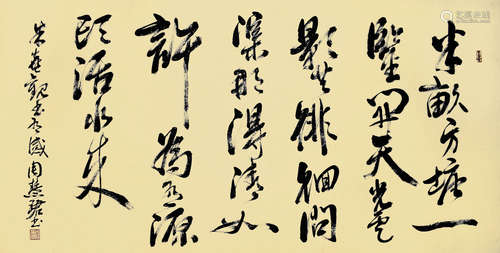 半亩方塘一
鑒開天光雲
影共徘徊問
渠那得清如
許為有源
頭活水来
朱熹觀書有感周慧珺書